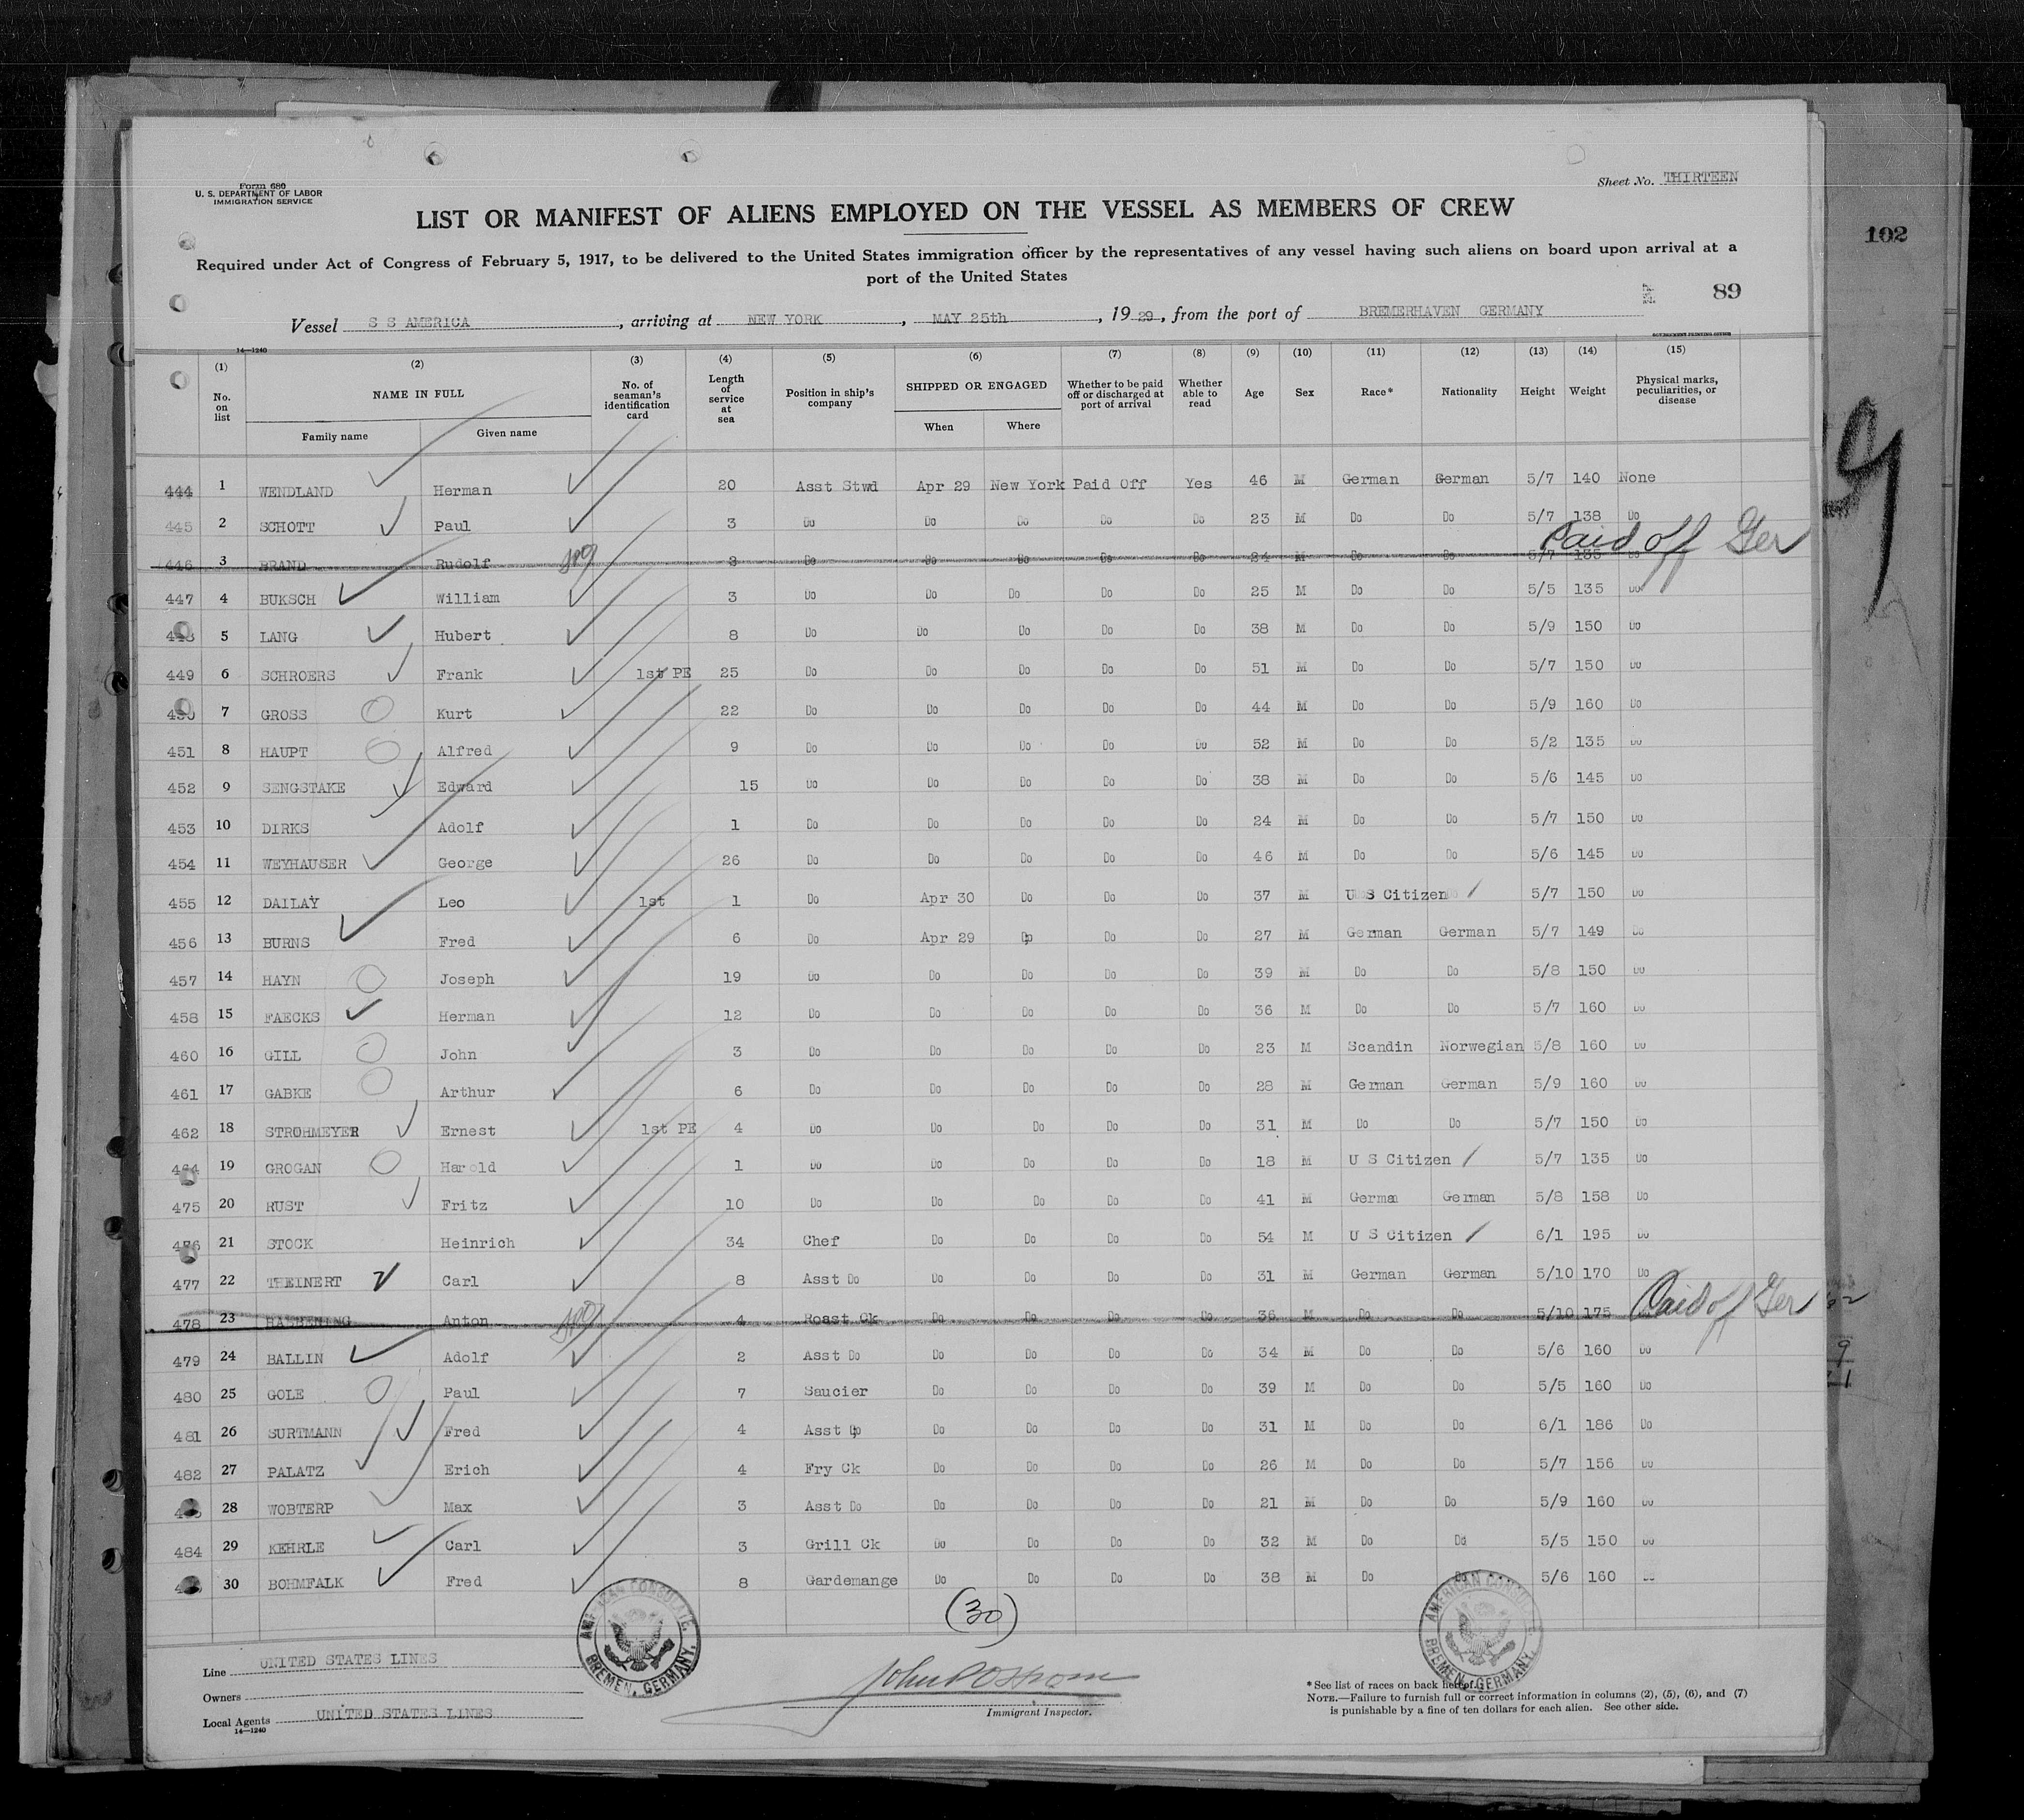 Form 680
U. S. DEPARTMENT OF LABOR
IMMIGRATION SERVICE
Sheet No. THIRTEEN
LIST OR MANIFEST OF ALIENS EMPLOYED ON THE VESSEL AS MEMBERS OF CREW
102
Required under Act of Congress of February 5, 1917, to be delivered to the United States immigration officer by the representatives of any vessel having such aliens on board upon arrival at a
port of the United States
89
Vessel S S AMERICA, arriving at NEW YORK, MAY 25th, 19 29, from the port of BREMERHAVEN GERMANY
14—1240 GOVERNMENT PRINTING OFFICE
(1) No. on list (2) NAME IN FULL Family name Given name (3) No. of seaman's identification card (4) Length of service at sea (5) Position in ship's company (6) SHIPPED OR ENGAGED When Where (7) Whether to be paid off or discharged at port of arrival (8) Whether able to read (9) Age (10) Sex (11) Race* (12) Nationality (13) Height (14) Weight (15) Physical marks, peculiarities, or disease
444 1 WENDLAND Herman 20 Asst Stwd Apr 29 New York Paid Off Yes 46 M German German 5/7 140 None
445 2 SCHOTT Paul 3 Do Do Do Do Do 23 M Do Do 5/7 138 Do
446 3 BRAND Rudolf 3 Do Do Do Do Do 24 M Do Do 5/7 135 Do Paid off Ger
447 4 BUKSCH William 3 Do Do Do Do Do 25 M Do Do 5/5 135 Do
448 5 LANG Hubert 8 Do Do Do Do Do 38 M Do Do 5/9 150 Do
449 6 SCHROERS Frank 1st PE 25 Do Do Do Do Do 51 M Do Do 5/7 150 Do
450 7 GROSS Kurt 22 Do Do Do Do Do 44 M Do Do 5/9 160 Do
451 8 HAUPT Alfred 9 Do Do Do Do Do 52 M Do Do 5/2 135 Do
452 9 SENGSTAKE Edward 15 Do Do Do Do Do 38 M Do Do 5/6 145 Do
453 10 DIRKS Adolf 1 Do Do Do Do Do 24 M Do Do 5/7 150 Do
454 11 WEYHAUSER George 26 Do Do Do Do Do 46 M Do Do 5/6 145 Do
455 12 DAILAY Leo 1st 1 Do Apr 30 Do Do Do 37 M U S Citizen 5/7 150 Do
456 13 BURNS Fred 6 Do Apr 29 Do Do Do 27 M German German 5/7 149 Do
457 14 HAYN Joseph 19 Do Do Do Do Do 39 M Do Do 5/8 150 Do
458 15 FAECKS Herman 12 Do Do Do Do Do 36 M Do Do 5/7 160 Do
460 16 GILL John 3 Do Do Do Do Do 23 M Scandin Norwegian 5/8 160 Do
461 17 GABKE Arthur 6 Do Do Do Do Do 28 M German German 5/9 160 Do
462 18 STROHMEYER Ernest 1st PE 4 Do Do Do Do Do 31 M Do Do 5/7 150 Do
464 19 GROGAN Harold 1 Do Do Do Do Do 18 M U S Citizen 5/7 135 Do
475 20 RUST Fritz 10 Do Do Do Do Do 41 M Germa German 5/8 158 Do
476 21 STOCK Heinrich 34 Chef Do Do Do Do 54 M U S Citizen 6/1 195 Do
477 22 THEINERT Carl 8 Asst Do Do Do Do Do 31 M German German 5/10 170 Do
478 23 Anton 4 Roast Ck Do Do Do Do 36 M Do Do 5/10 175 Paid off Ger
479 24 BALLIN Adolf 2 Asst Do Do Do Do Do 34 M Do Do 5/6 160 Do
480 25 GOLE Paul 7 Saucier Do Do Do Do 39 M Do Do 5/5 160 Do
481 26 SURTMANN Fred 4 Asst Do Do Do Do Do 31 M Do Do 6/1 186 Do
482 27 PALATZ Erich 4 Fry Ck Do Do Do Do 26 M Do Do 5/7 156 Do
28 WOBTERP Max 3 Asst Do Do Do Do Do 21 M Do Do 5/9 160 Do
484 29 KEHRLE Carl 3 Grill Ck Do Do Do Do 32 M Do Do 5/5 150 Do
30 BOHMFALK Fred 8 Gardemange Do Do Do Do 38 M Do Do 5/6 160 Do
(30)
AMERICAN CONSULATE. BREMEN, GERMANY.
AMERICAN CONSULATE. BREMEN, GERMANY.
Line UNITED STATES LINES
Owners
Local Agents UNITED STATES LINES
14—1240
Immigrant Inspector.
*See list of races on back hereof.
NOTE.—Failure to furnish full or correct information in columns (2), (5), (6), and (7)
is punishable by a fine of ten dollars for each alien. See other side.